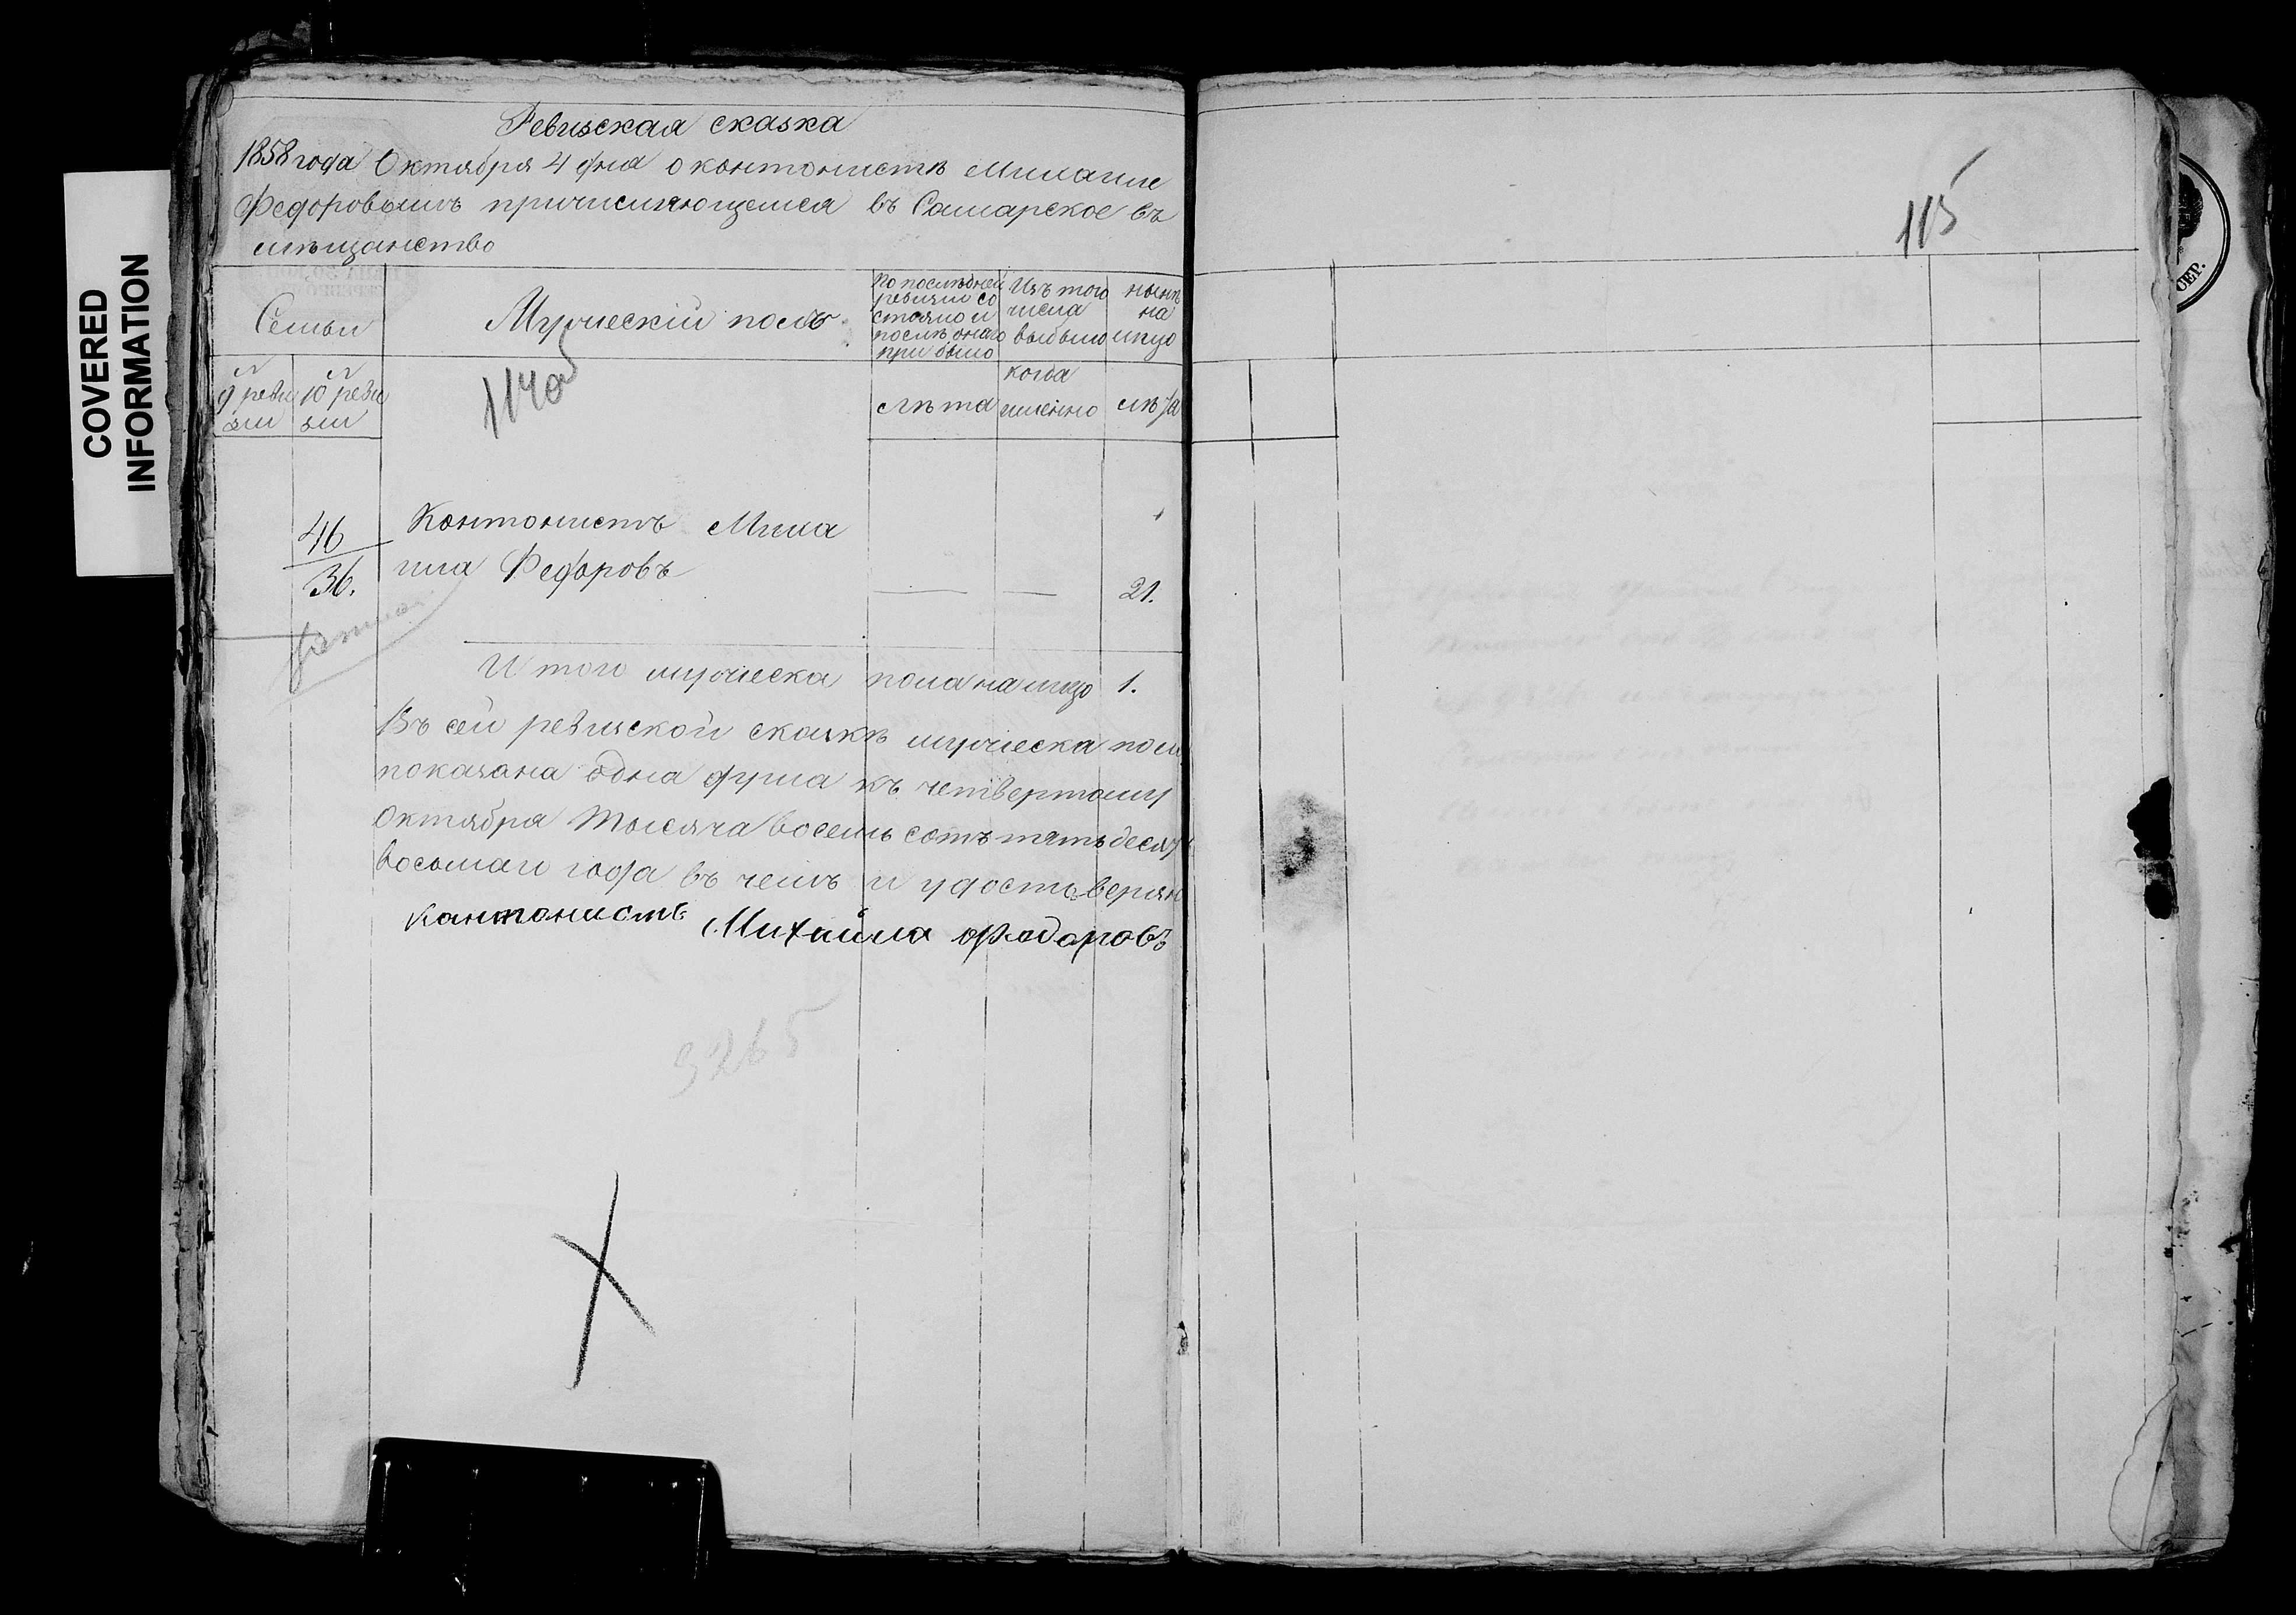 COVERED
INFORMATION
Ревизская сказка
1858 года Октября 4 дня о контонистѣ Михаиле
Федоровымъ причисляющемся въ Самарское въ
мѣщанство
115
Семьи
Мужескій полъ
По последней
ревизіи со
стояло и
послѣ онаго
при было
Изъ того
числа
выбыло
нынѣ
на
лицо
9 реви
зіи
10 реви
зіи
114об
лѣта
когда
именно
лѣта
46
36.
Контонистъ Миха
ила Федоровъ
— — 21.
И того мужеска пола на лицо 1.
Въ сей ревизской сказкѣ мужеска пола
показана одна душа къ четвертому
Октября тысяча восемь сотъ пятьдесят
восьмаго года въ чемъ и удостоверяю
кантонистъ Михайла Федоровъ
3265
ОЕР.